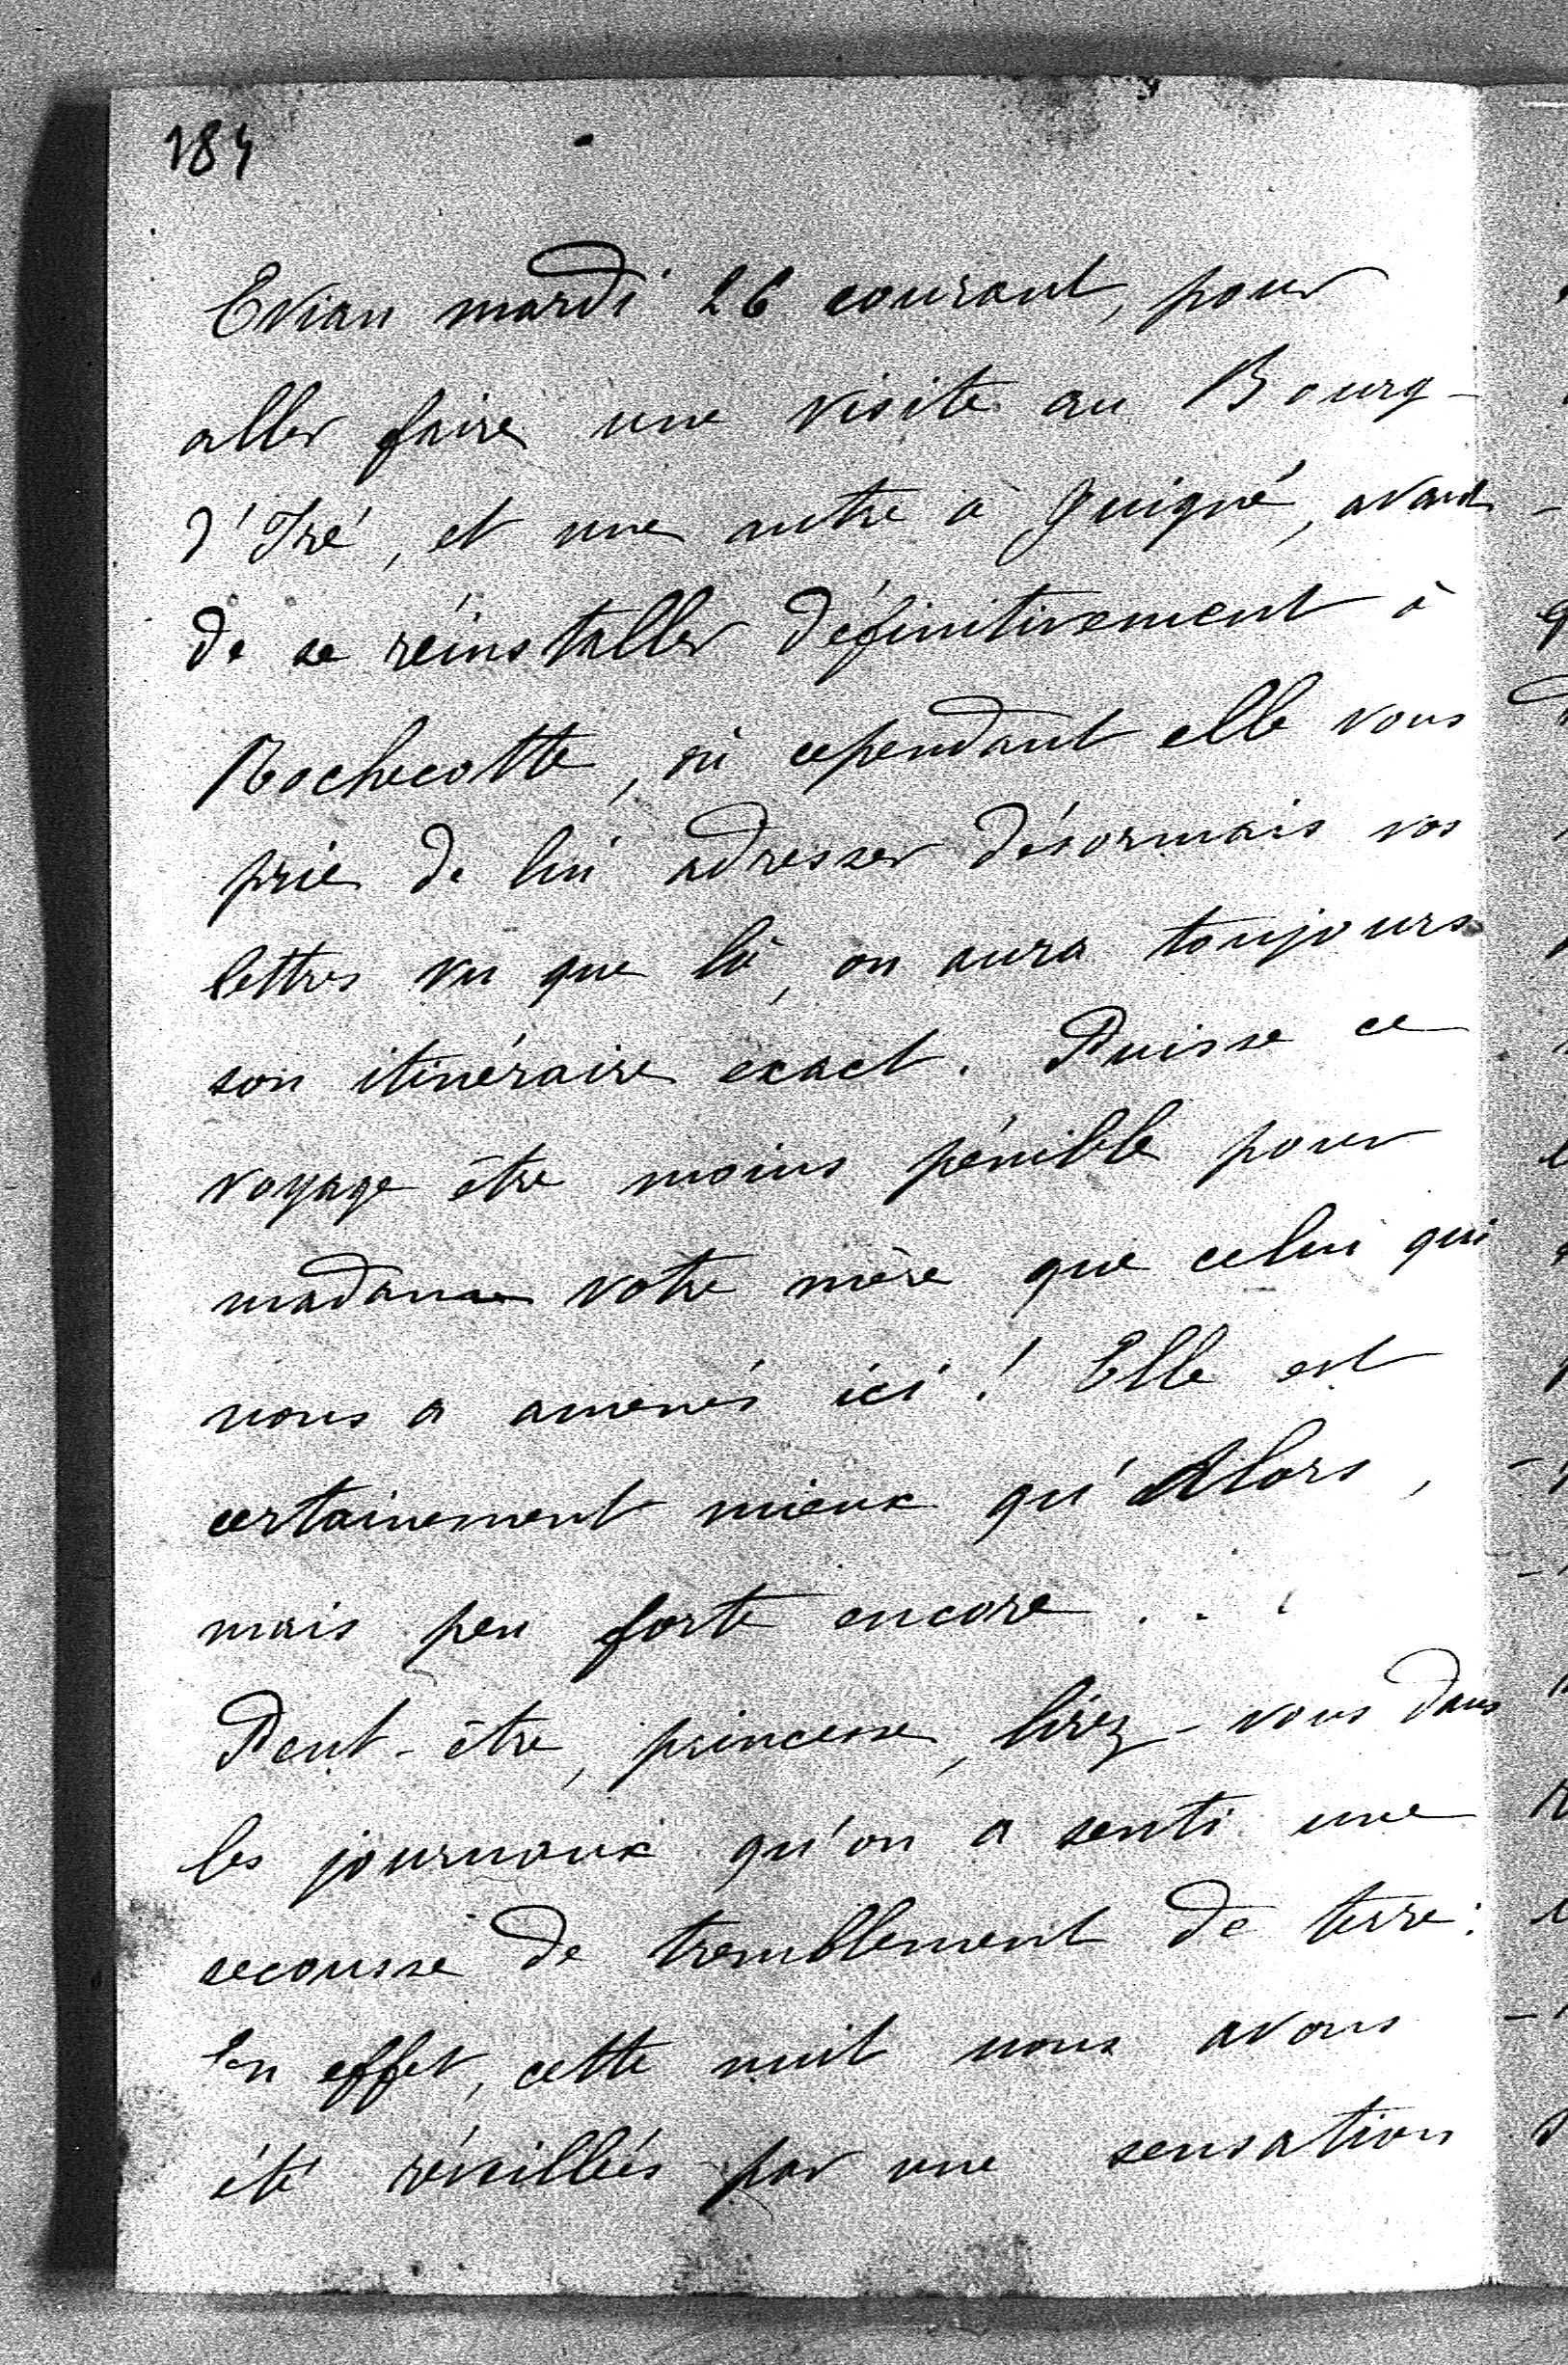 184
Evian mardi 26 courant, pour
aller faire une visite au Bourg-
d'Iré, et une autre à Juigné, avant
de se réinstaller définitivement à
Rochecotte, où cependant elle vous
prie de lui adresser désormais vos
lettres vu que là, on aura toujours
son itinéraire exact. Puisse ce
voyage être moins pénible pour
madame votre mère que celui qui
nous a amenés ici ! Elle est
certainement mieux qu'alors,
mais peu forte encore . . .
Peut-être, princesse, lirez-vous dans
les journaux qu'on a senti une
secousse de tremblement de terre :
En effet, cette nuit nous avons
été réveillés par une sensation